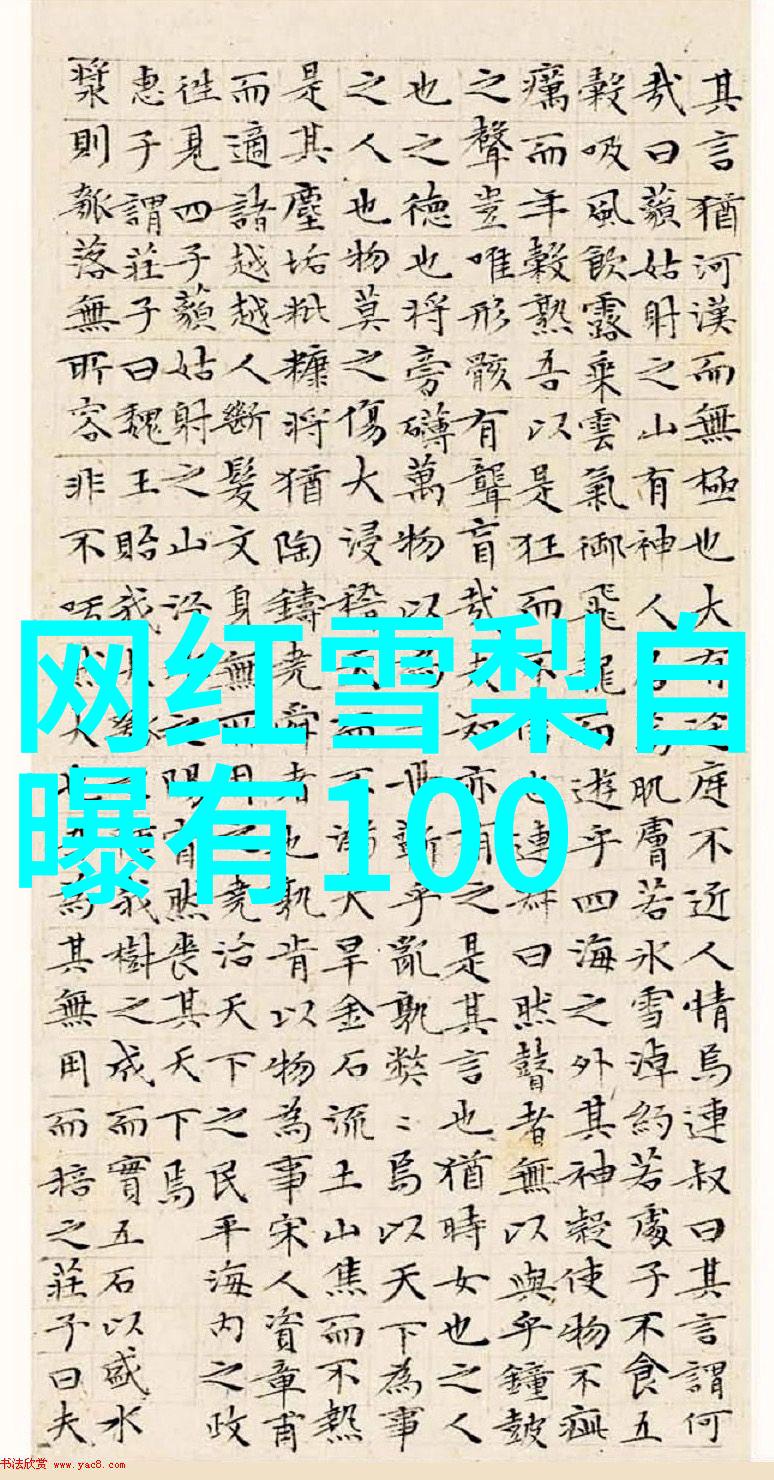 网红雪梨自
曝有100
其言猶河漢而無極也大有庭不近人情焉連叔曰其言謂何
哉曰藐姑射之山有神人肌膚若冰雪淖約若處子不食五
穀吸風飲露乘雲氣御飛龍而遊乎四海之外其神凝使物不疵
癘而年穀熟吾以是狂而不信也連叔曰然瞽者無以與乎鐘鼓
之聲豈唯形骸有聾盲哉夫知亦有之是其言也猶時女也之人
也之德也將旁礴萬物以為一世蘄乎亂孰弊〻焉以天下為事
之人也物莫之傷大浸稽天而不溺大旱金石流土山焦而不熱
是其塵垢粃糠將猶陶鑄堯舜者也孰肯以物為事宋人資章甫
而適諸越越人斷髮文身無所用之堯治天下之民平海內之政
往見四子藐姑射之山汾之陽窅然喪其天下焉
惠子謂莊子曰魏王貽我大種我樹之成而實五石以盛水
漿則瓠落無所容非不呺然大為其無用而掊之莊子曰夫
书法欣赏 www.yac8.com